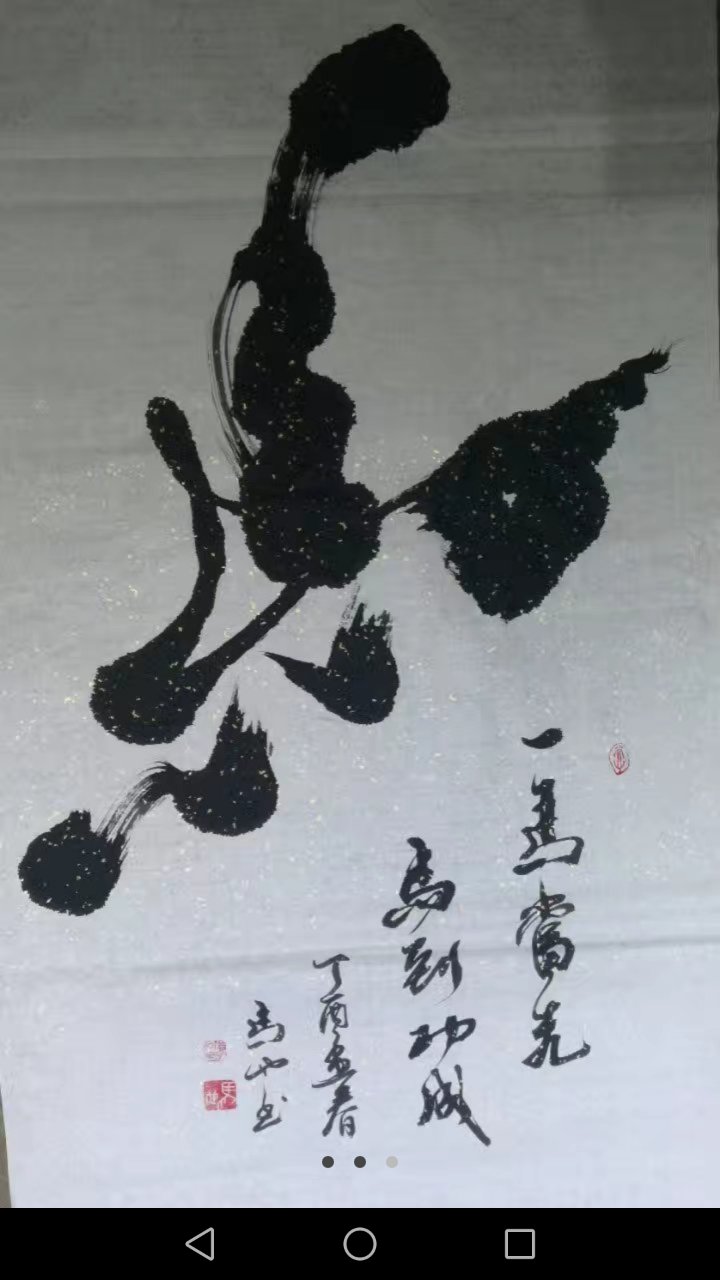 一馬當先
馬到功成
丁酉孟春